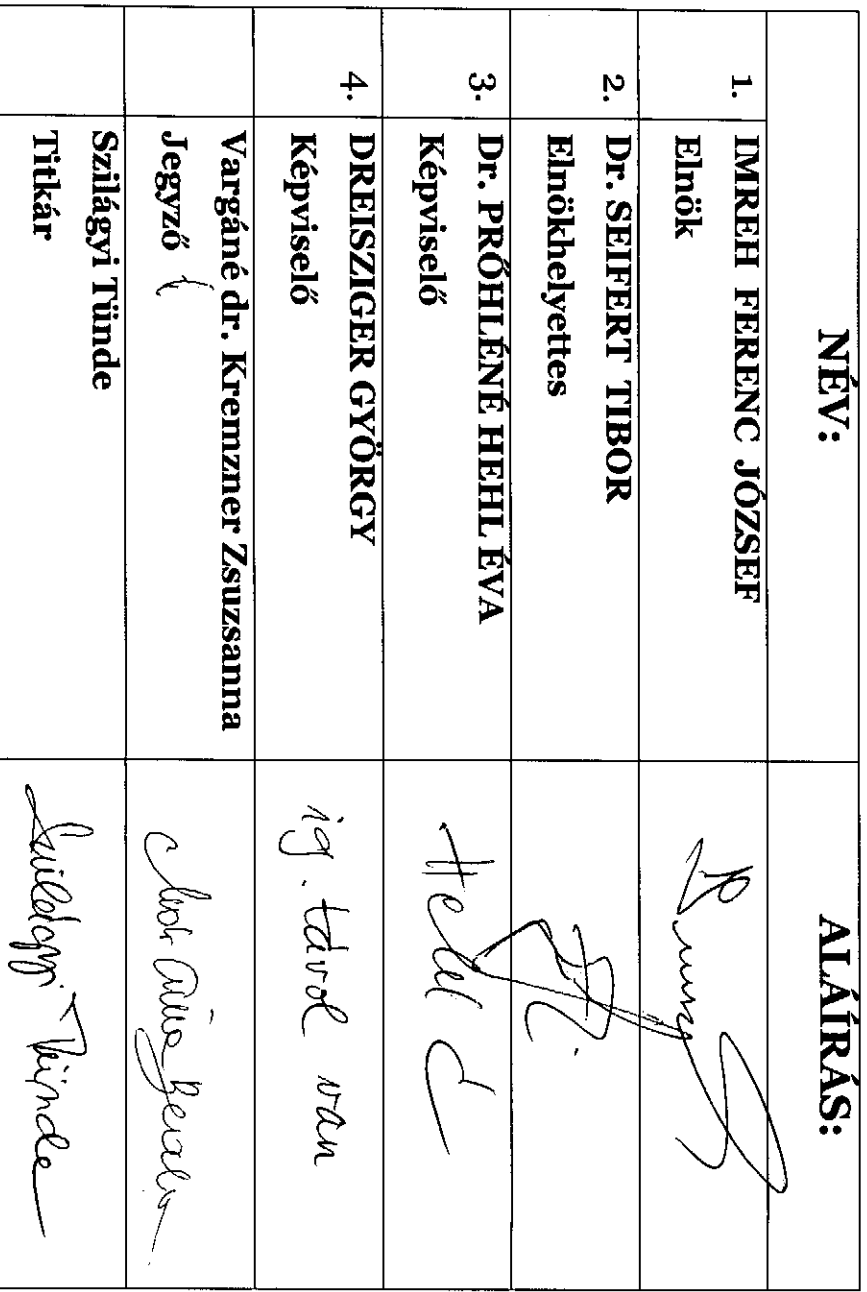 NÉV: ALÁÍRÁS:
1. IMREH FERENC JÓZSEF
Elnök
2. Dr. SEIFERT TIBOR
Elnökhelyettes
3. Dr. PRŐHLÉNÉ HEHL ÉVA
Képviselő
Hehl É
4. DREISZIGER GYÖRGY
Képviselő
ig. távol van
Vargáné dr. Kremzner Zsuzsanna
Jegyző
Szilágyi Tünde
Titkár
Szilágyi Tünde